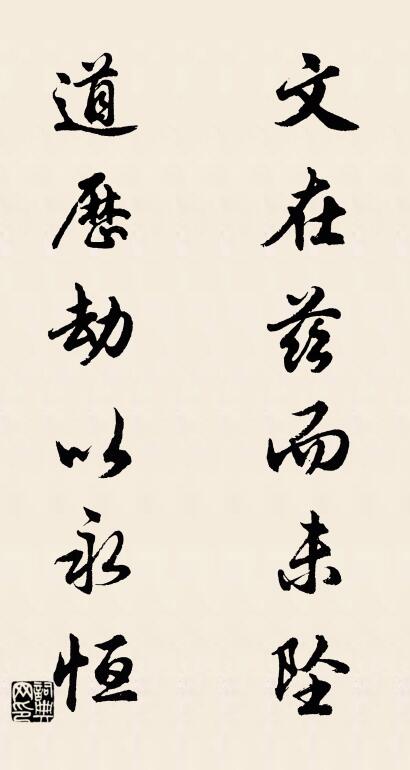 文在兹而未坠
道历劫以永恒
詞典网印